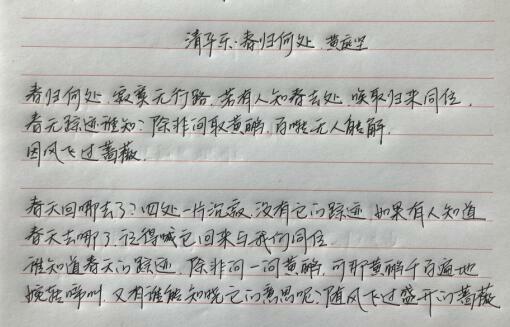 清平乐·春归何处 黄庭坚
春归何处.寂寞无行路.若有人知春去处.唤取归来同住.
春无踪迹谁知?除非问取黄鹂.百啭无人能解.
因风飞过蔷薇.
春天回哪去了?四处一片沉寂.没有它的踪迹.如果有人知道
春天去哪了.记得喊它回来与我们同住.
谁知道春天的踪迹.除非问一问黄鹂.可那黄鹂千百遍地
婉转啼叫.又有谁能知晓它的意思呢?随风飞过盛开的蔷薇